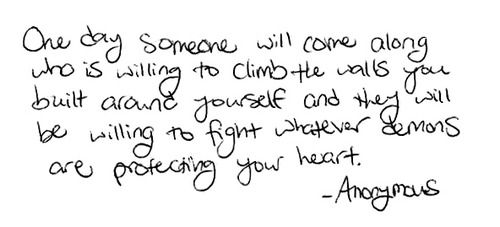 One day someone will come along
who is willing to climb the walls you
built around yourself and they will
be willing to fight whatever demons
are protecting your heart.
-Anonymous